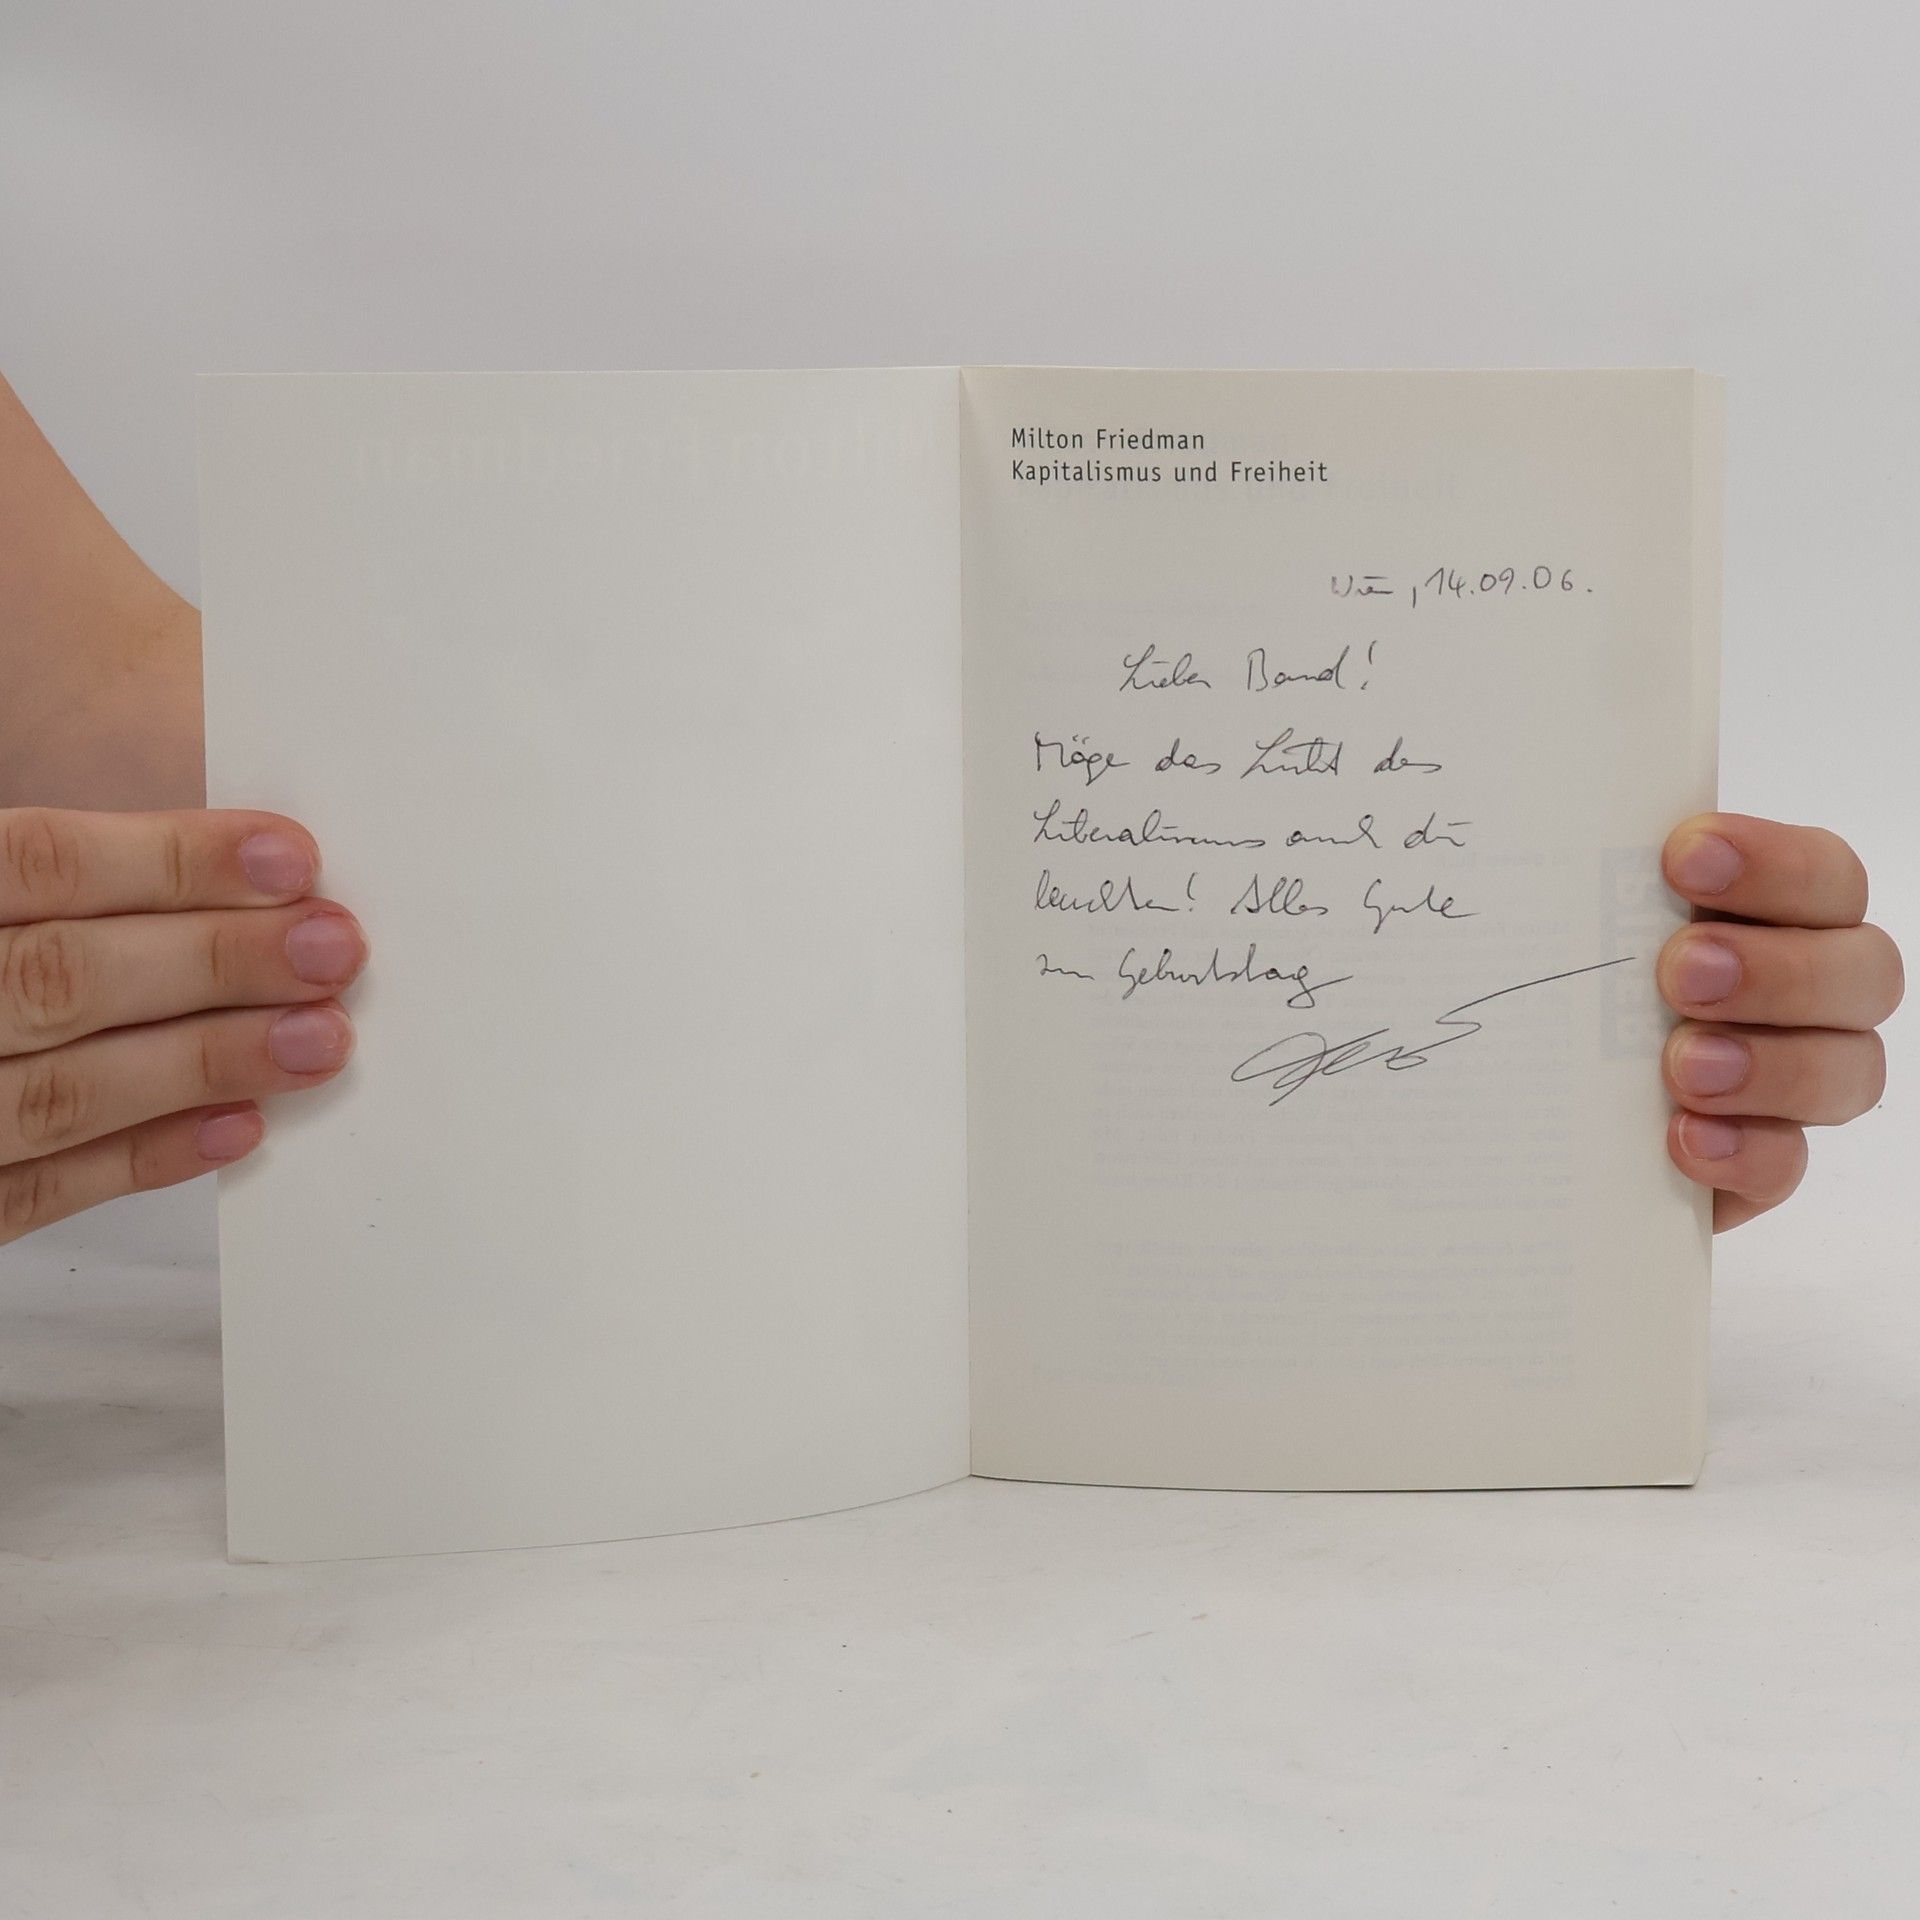 Milton Friedman
Kapitalismus und Freiheit
Wien, 14.09.06.
Lieber
Möge das Licht des
Liberalismus auch dir
leuchten! Alles Gute
zum Geburtstag